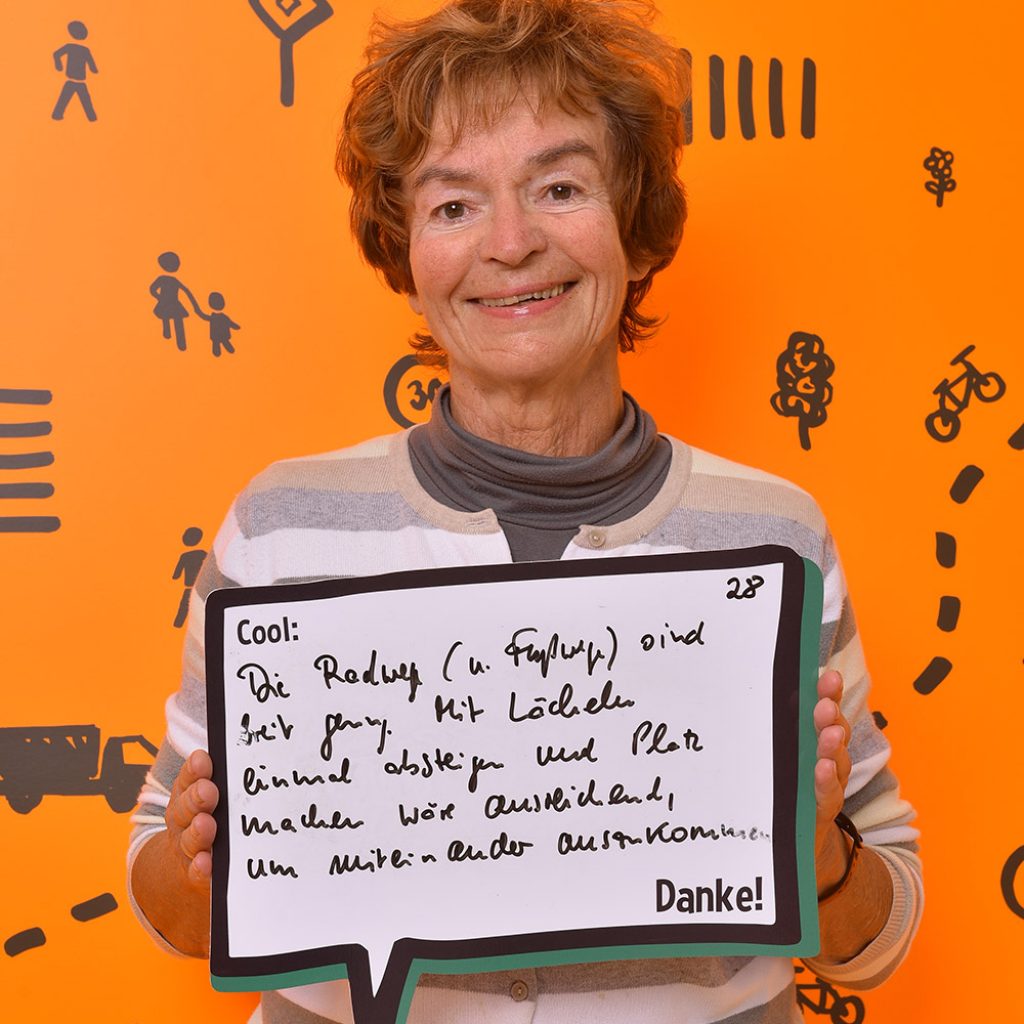 30
28
Cool:
Die Radwege (u. Fußwege) sind
breit genug. Mit Lächeln
einmal absteigen und Platz
machen wäre ausreichend,
um miteinander auszukommen
Danke!